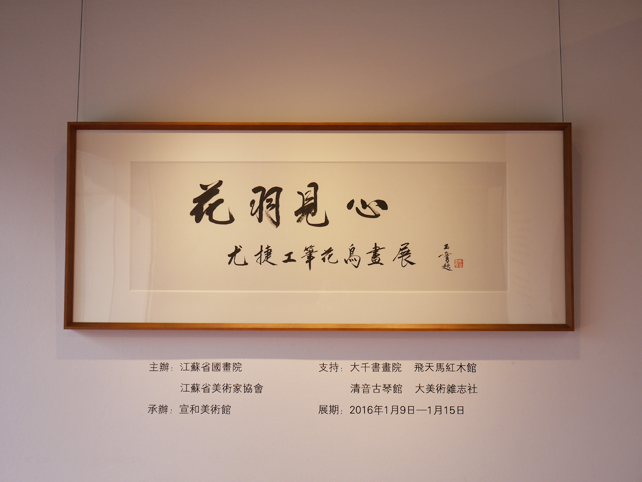 花羽見心
尤捷工筆花鳥畫展
主辦：江蘇省國畫院
江蘇省美術家協會
承辦：宣和美術館
支持：大千書畫院 飛天馬紅木館
清音古琴館 大美術雜志社
展期：2016年1月9日—1月15日